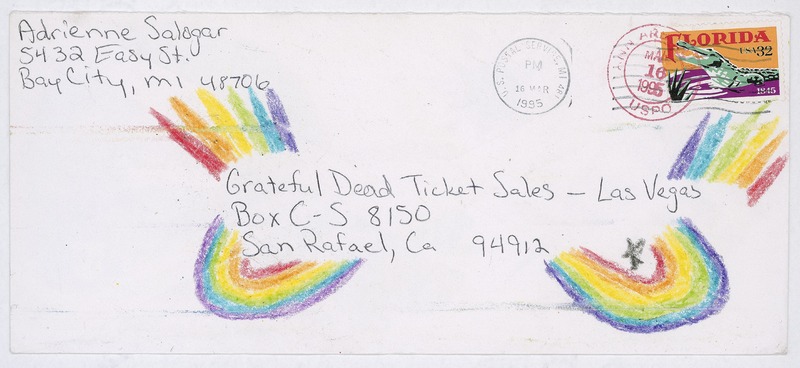 Adrienne Salogar
5432 Easy St.
Bay City, mi 48706
U.S. POSTAL SERVICE, MI 481
PM
16 MAR
1995
ANN AR
MAR
16
1995
USPO
FLORIDA
USA 32
1845
Grateful Dead Ticket Sales – Las Vegas
Box C-S 8150
San Rafael, Ca 94912